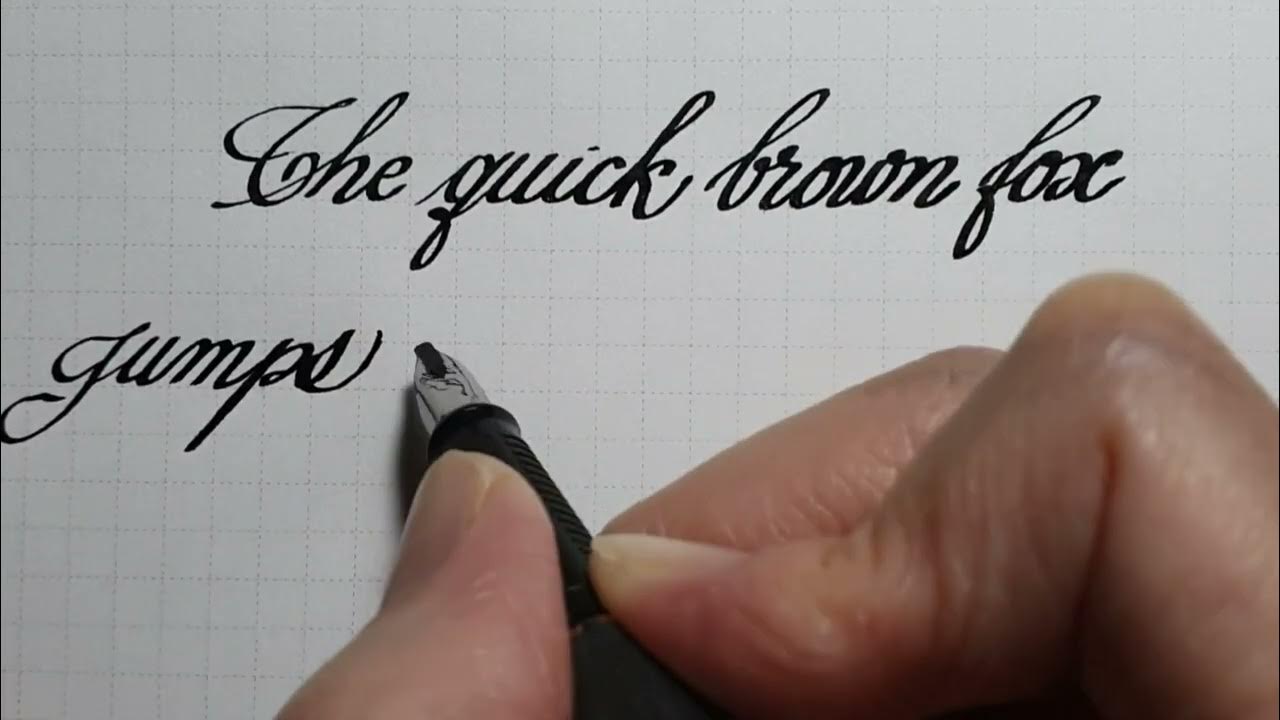 The quick brown fox
jumps